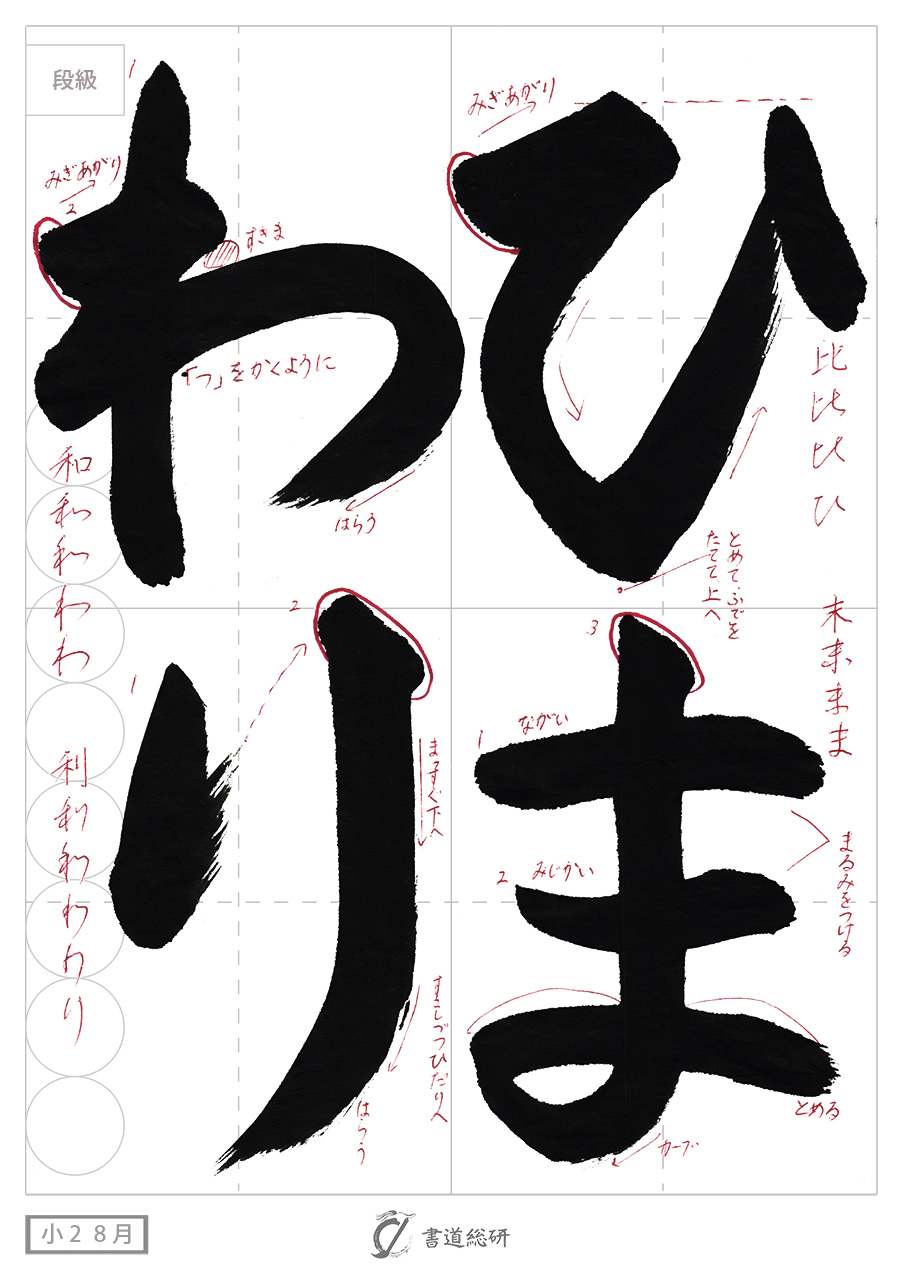 ひま
わり
みぎあがり
比比比ひ
とめて、ふでを
たてて、上へ
末末まま
3
1
ながい
2
みじかい
まるみをつける
とめる
カーブ
段級
1
みぎあがり
2
すきま
「つ」をかくように
はらう
和和和わわ
2
1
まっすぐ下へ
すこしづつひだりへ
はらう
利利わり
小2 8月
書道総研